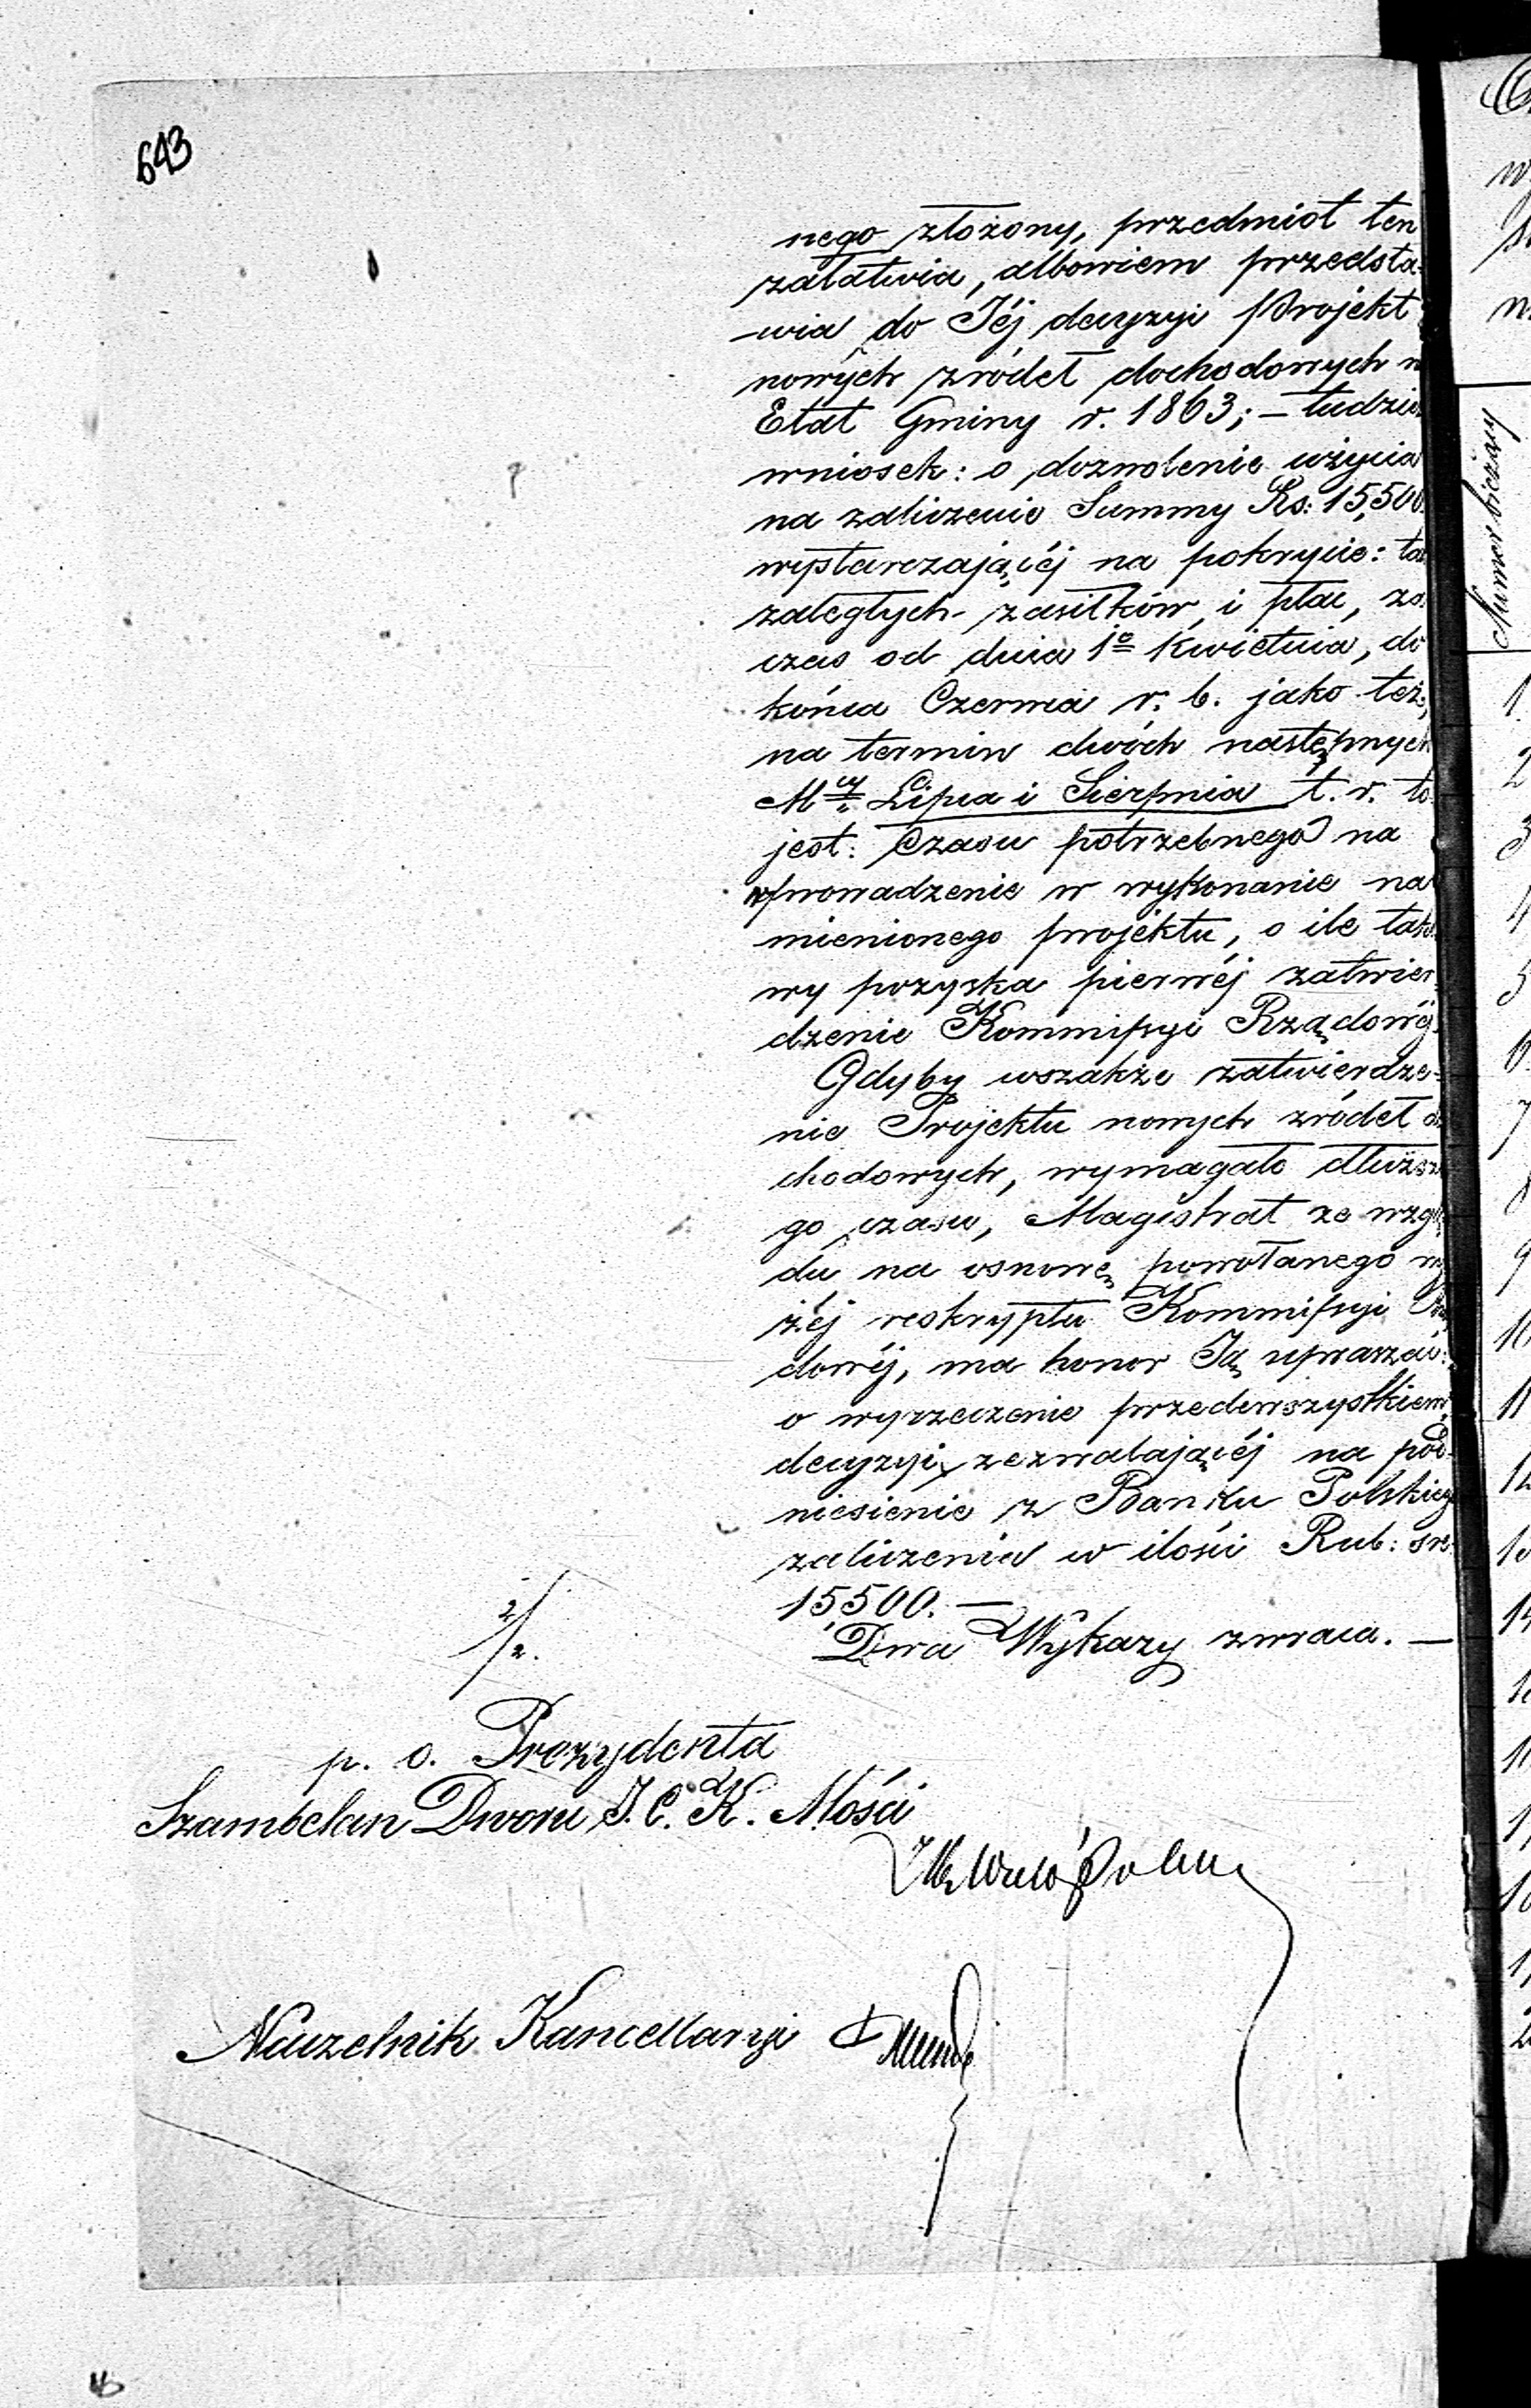 643
nego złożony, przedmiot ten
załatwia, albowiem przedsta-
-wia do Jéj decyzyi Projekt
nowych źródeł dochodowych
Etat Gminy r. 1863; — tudzie
wniosek: o dozwolenie użycia
na zaliczenie Summy Rs: 15,500
wystarczającéj na pokrycie:
zaległych zasiłków, i płac, za
czas od dnia 1º Kwietnia, do
końca Czerwca r. b. jako też,
na termin dwóch następnych
Mcy Lipca i Sierpnia t. r. to
jest: Czasu potrzebnego na
wprowadzenie w wykonanie na
mienionego projektu, o ile tako
wy pozyska pierwéj zatwier
dzenie Kommissyi Rządowéj.
Gdyby wszakże zatwierdze-
nie Projektu nowych źródeł do
chodowych, wymagało dłuższe
go czasu, Magistrat ze wzglę
du na osnowę powołanego wy
żéj reskryptu Kommissyi Rzą
dowéj, ma honor Ją upraszać:
o wyrzeczenie przedewszystkiem,
decyzyi, zezwalającéj na pod-
niesienie z Banku Polskiego
zaliczenia w ilości Rub: sr.
15,500. —
Dwa Wykazy zwraca. —
2/2.
p. o. Prezydenta
Szambelan Dworu J. C. K. Mości
Wielopolski
Naczelnik Kancellaryi
Numer bieżący
1.
2
3
4
5
6.
7
8
9
10
11
12